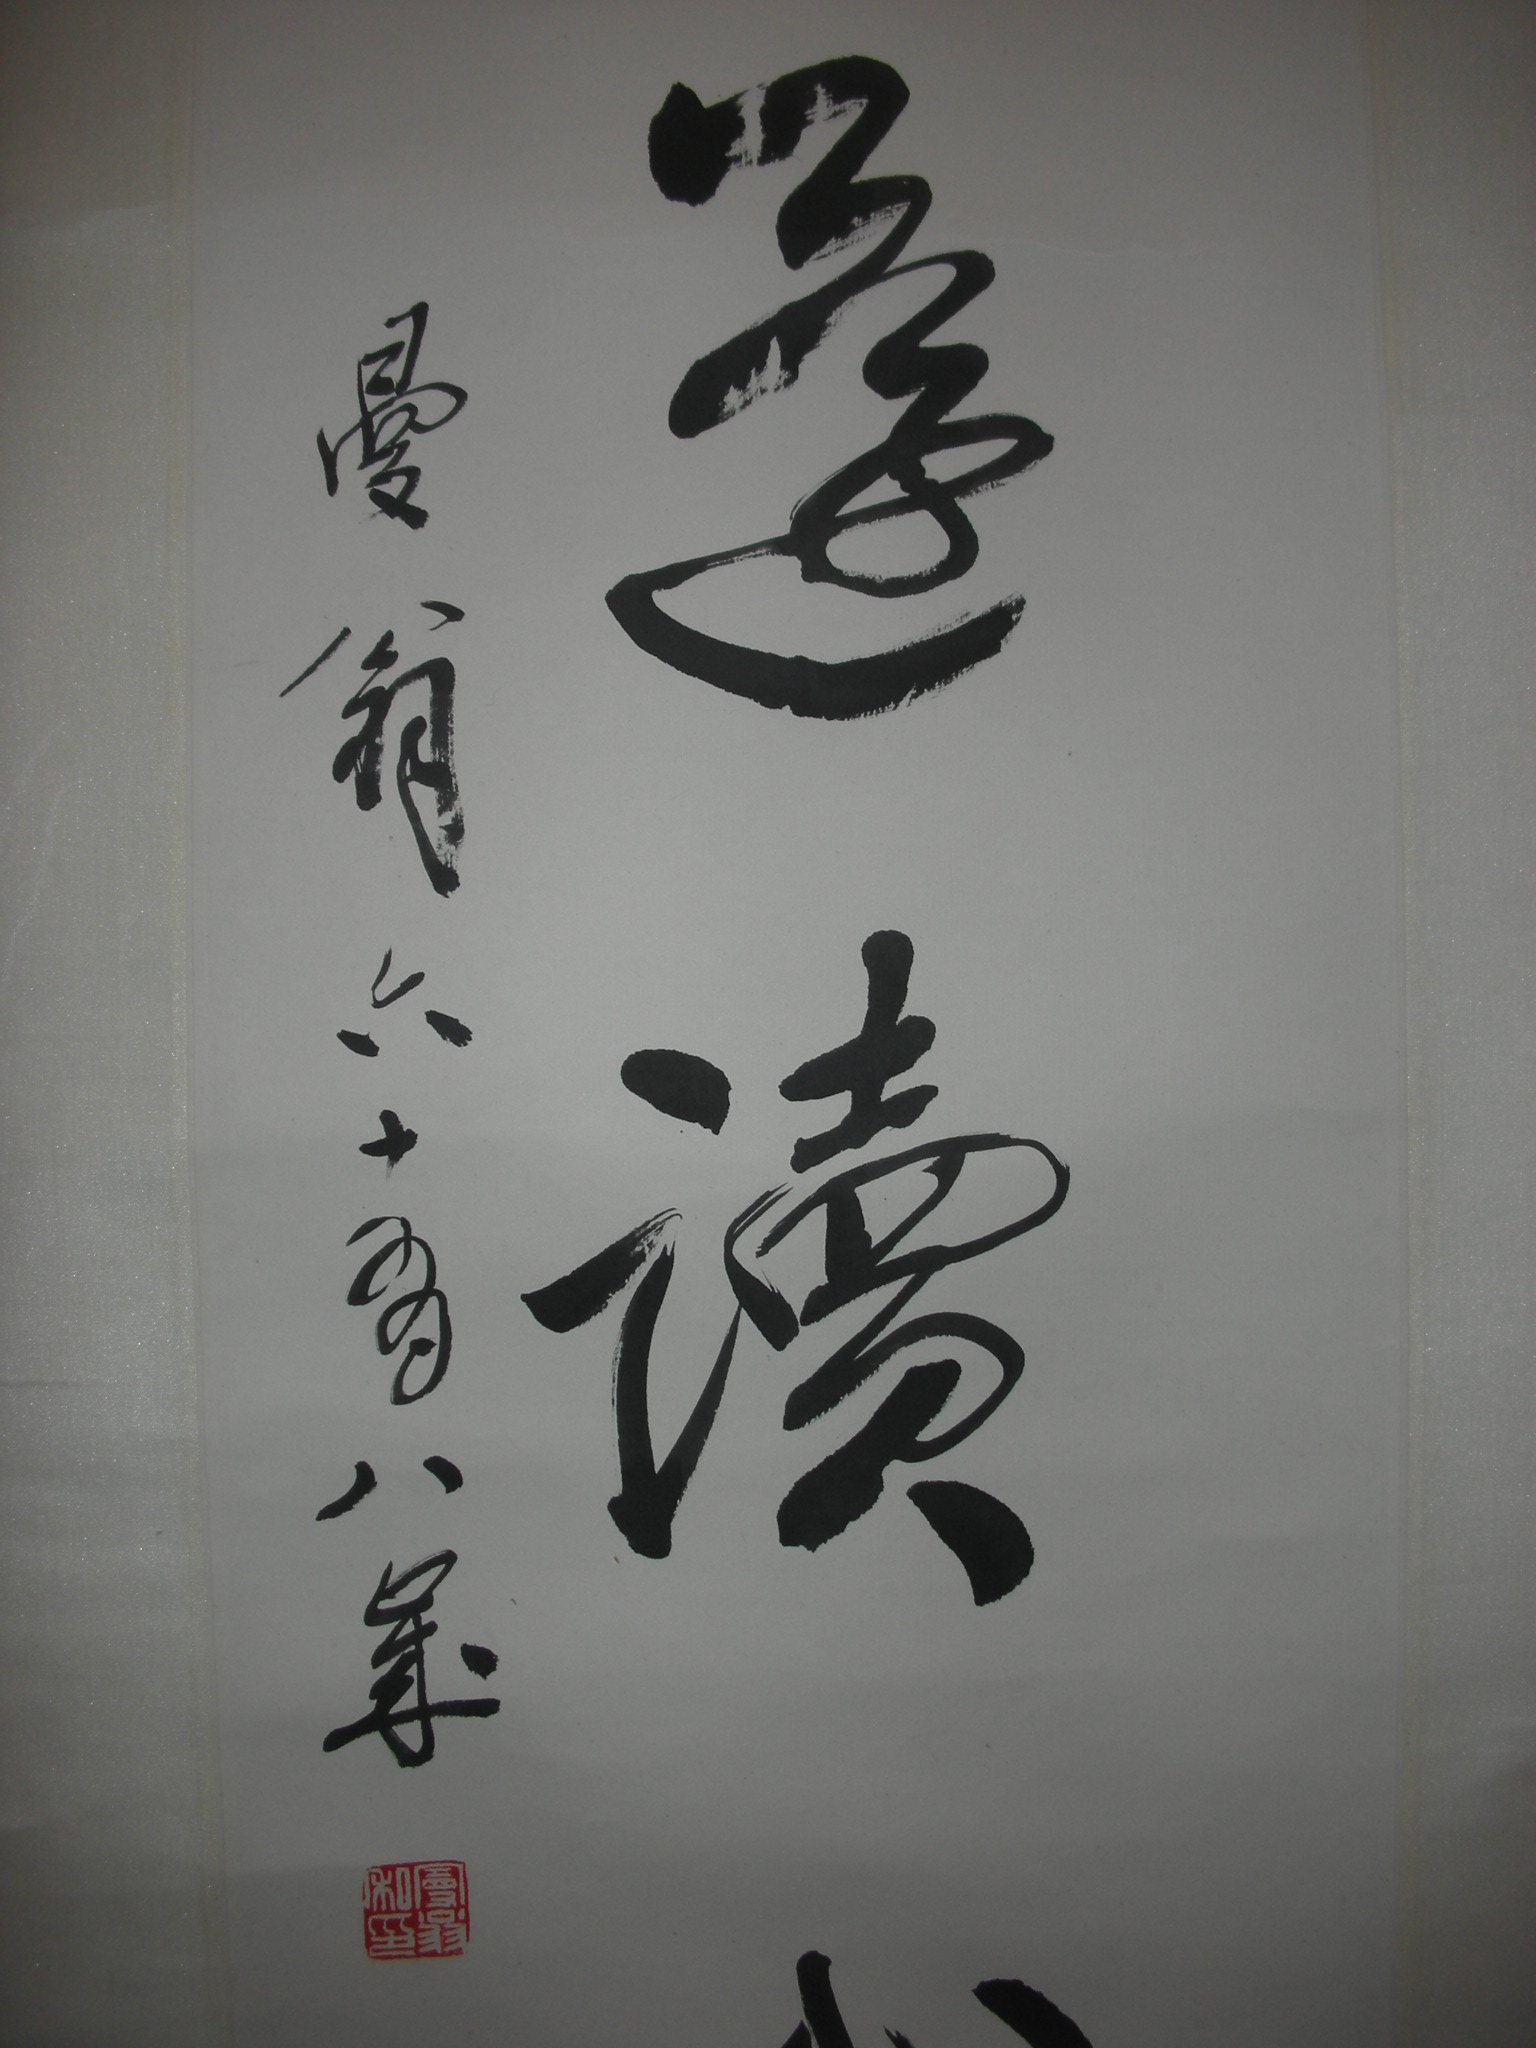 還讀
曼翁六十有八歲